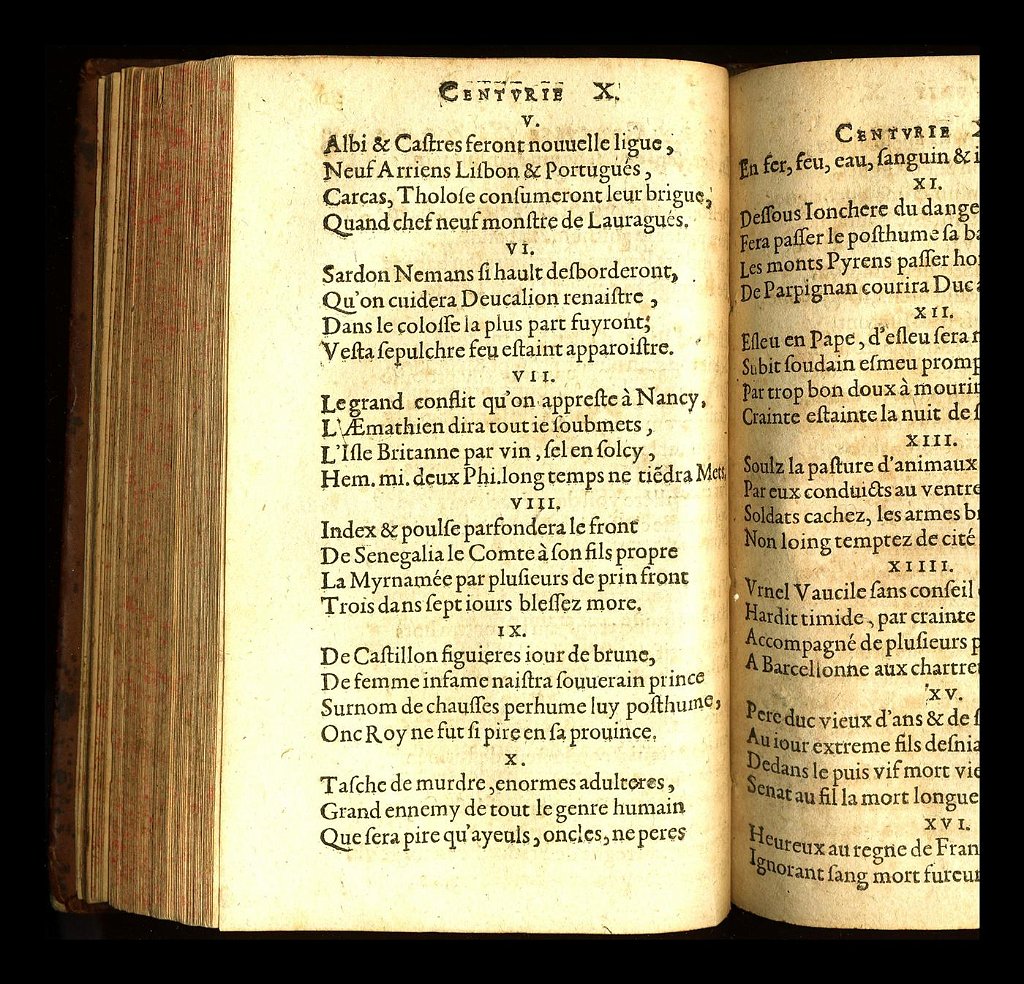 CENTVRIE X.
V.
Albi & Caſtres feront nouuelle ligue,
Neuf Arriens Liſbon & Portugués,
Carcas, Tholoſe conſumeront leur brigue,
Quand chef neuf monſtre de Lauragués.
VI.
Sardon Nemans ſi hault deſborderont,
Qu'on cuidera Deucalion renaiſtre,
Dans le coloſſe la plus part fuyront;
Veſta ſepulchre feu eſtaint apparoiſtre.
VII.
Le grand conflit qu'on appreſte à Nancy,
L'Æmathien dira tout ie ſoubmets,
L'Iſle Britanne par vin, ſel en ſolcy,
Hem. mi. deux Phi. long temps ne tiẽdra Mets.
VIII.
Index & poulſe parfondera le front
De Senegalia le Comte à ſon fils propre
La Myrnamée par pluſieurs de prin front
Trois dans ſept iours bleſſez more.
IX.
De Caſtillon figuieres iour de brune,
De femme infame naiſtra ſouuerain prince
Surnom de chauſſes perhume luy poſthume,
Onc Roy ne fut ſi pire en ſa prouince.
X.
Taſche de murdre, enormes adulteres,
Grand ennemy de tout le genre humain
Que ſera pire qu'ayeuls, oncles, ne peres
CENTVRIE
En fer, feu, eau, ſanguin &
XI.
Deſſous Ionchere du dange
Fera paſſer le poſthume ſa
Les monts Pyrens paſſer
De Parpignan courira Duc
XII.
Eſleu en Pape, d'eſleu ſera
Subit ſoudain eſmeu promp
Par trop bon doux à mourir
Crainte eſtainte la nuit de
XIII.
Soulz la paſture d'animaux
Par eux conduicts au ventre
Soldats cachez, les armes
Non loing temptez de cité
XIIII.
Vrnel Vaucile ſans conſeil
Hardit timide, par crainte
Accompagné de pluſieurs
A Barcellonne aux chartre
XV.
Pere duc vieux d'ans & de
Au iour extreme fils deſnia
Dedans le puis vif mort vie
Senat au fil la mort longue
XVI.
Heureux au regne de Fran
Ignorant ſang mort fureur